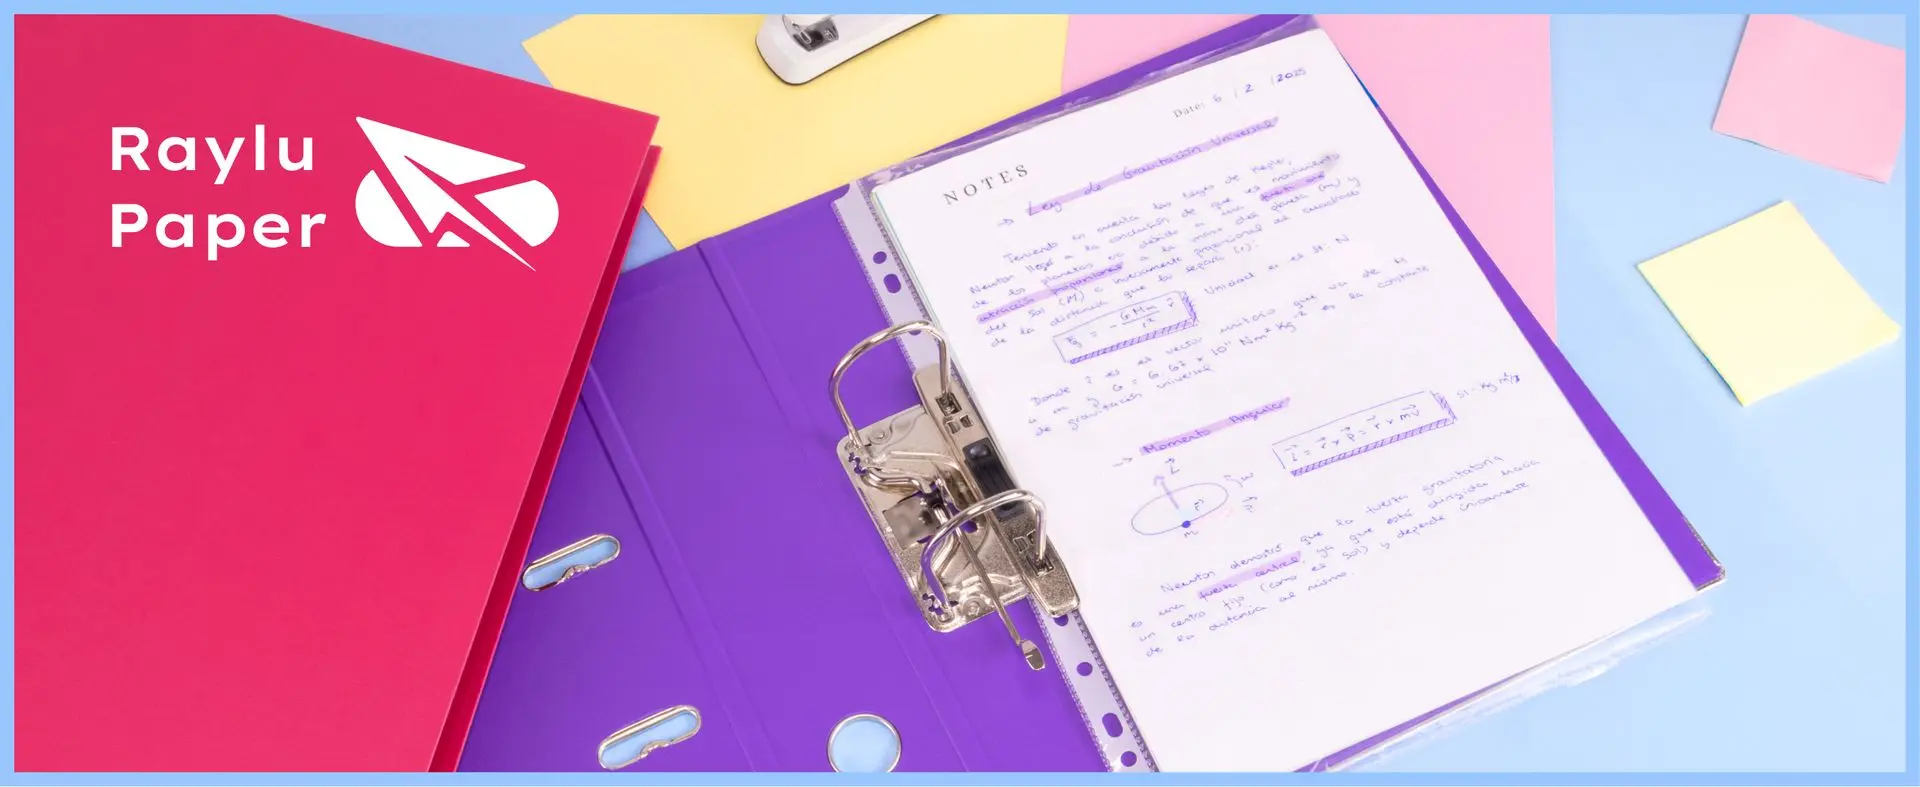 Raylu
Paper
Date: 6 / 2 / 2025
NOTES
→ Ley de Gravitación Universal
Teniendo en cuenta las leyes de Kepler,
Newton llegó a la conclusión de que el movimiento
de los planetas es debido a una fuerza de
atracción proporcional a la masa del planeta (m) y
del Sol (M) e inversamente proporcional al cuadrado
de la distancia que los separa (r):
Fg = - G Mm / r² r
Unidad en el SI: N
Donde r es el vector unitario que va de M
a m y G = 6.67 x 10⁻¹¹ Nm² Kg⁻² es la constante
de gravitación universal
→ Momento Angular
L = r x p = r x mv
SI - Kg m²/s
L
r
p
M
Newton demostró que la fuerza gravitatoria
es una fuerza central, ya que está dirigida hacia
un centro fijo (como el Sol) y depende únicamente
de la distancia al mismo.